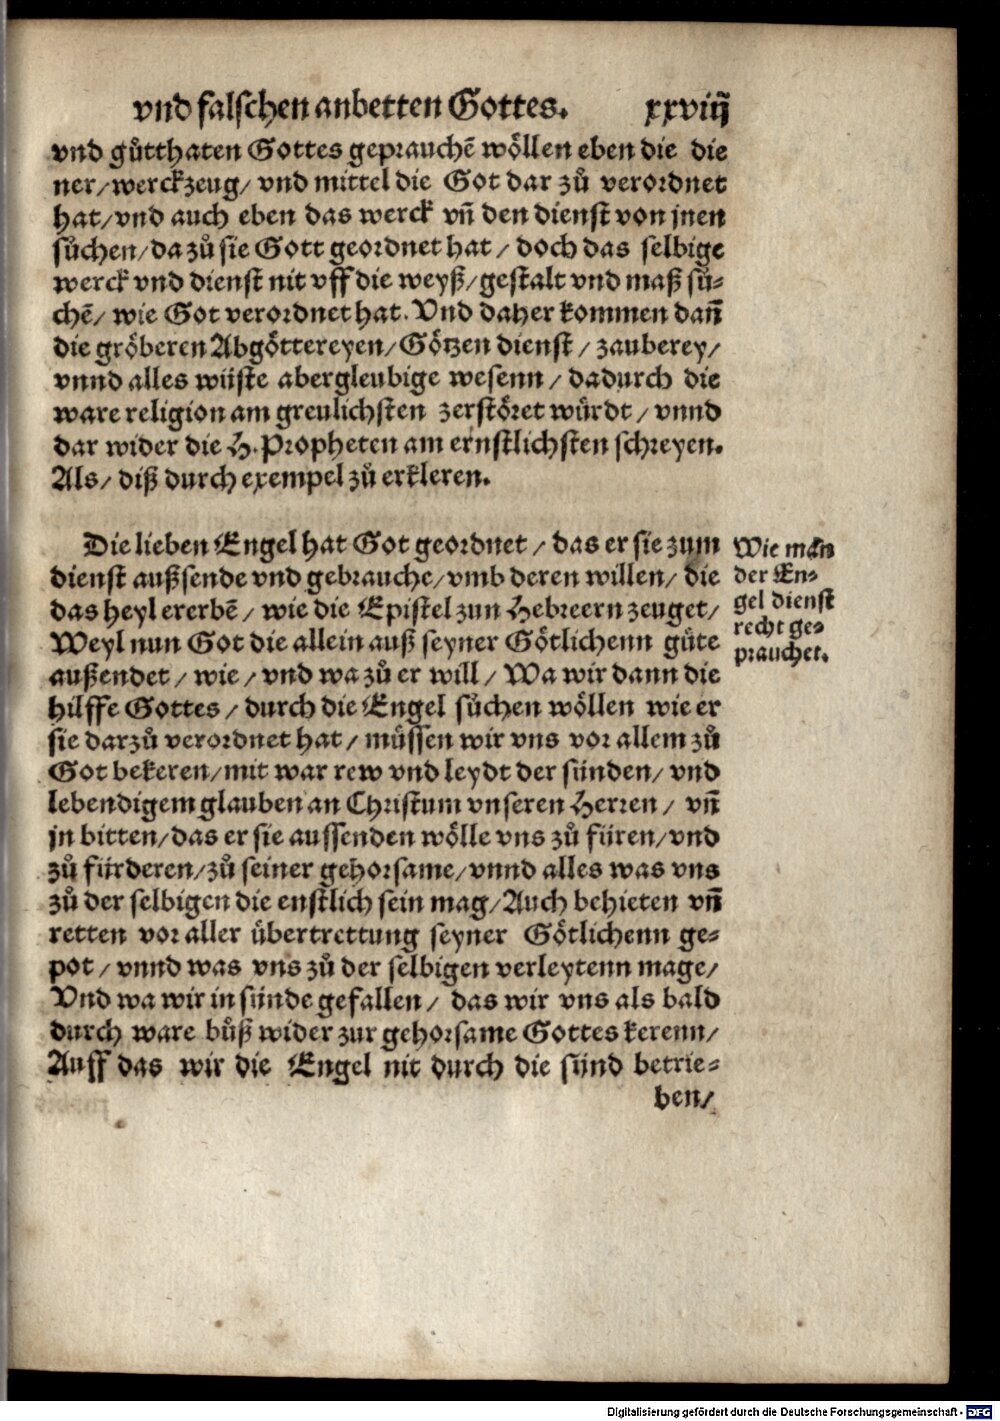 vnd falschen anbetten Gottes. xxviiij
vnd gůtthaten Gottes geprauchē wöllen eben die die
ner/werckzeug/ vnd mittel die Got dar zů verordnet
hat/vnd auch eben das werck vñ den dienst von jnen
sůchen/da zů sie Gott geordnet hat/ doch das selbige
werck vnd dienst nit vff die weyß/gestalt vnd maß sů-
chē/ wie Got verordnet hat. Vnd daher kommen dañ
die gröberen Abgöttereyen/Götzen dienst/ zauberey/
vnnd alles wüste abergleubige wesenn/ dadurch die
ware religion am greulichsten zerstöret würdt/ vnnd
dar wider die H. Propheten am ernstlichsten schreyen.
Als/ diß durch exempel zů erkleren.
Die lieben Engel hat Got geordnet/ das er sie zum
dienst außsende vnd gebrauche/vmb deren willen/ die
das heyl ererbē/ wie die Epistel zun Hebreern zeuget/
Weyl nun Got die allein auß seyner Götlichenn güte
außendet/ wie/ vnd wa zů er will/ Wa wir dann die
hilffe Gottes/ durch die Engel sůchen wöllen wie er
sie darzů verordnet hat/ müssen wir vns vor allem zů
Got bekeren/mit war rew vnd leydt der sünden/ vnd
lebendigem glauben an Christum vnseren Herren/ vñ
jn bitten/das er sie aussenden wölle vns zů füren/vnd
zů fürderen/zů seiner gehorsame/vnnd alles was vns
zů der selbigen die enstlich sein mag/Auch behieten vñ
retten vor aller übertrettung seyner Götlichenn ge-
pot/ vnnd was vns zů der selbigen verleytenn mage/
Vnd wa wir in sünde gefallen/ das wir vns als bald
durch ware bůß wider zur gehorsame Gottes kerenn/
Auff das wir die Engel nit durch die sünd betrie-
ben/
Wie man
der En-
gel dienst
recht ge-
prauchet.
Digitalisierung gefördert durch die Deutsche Forschungsgemeinschaft - DFG